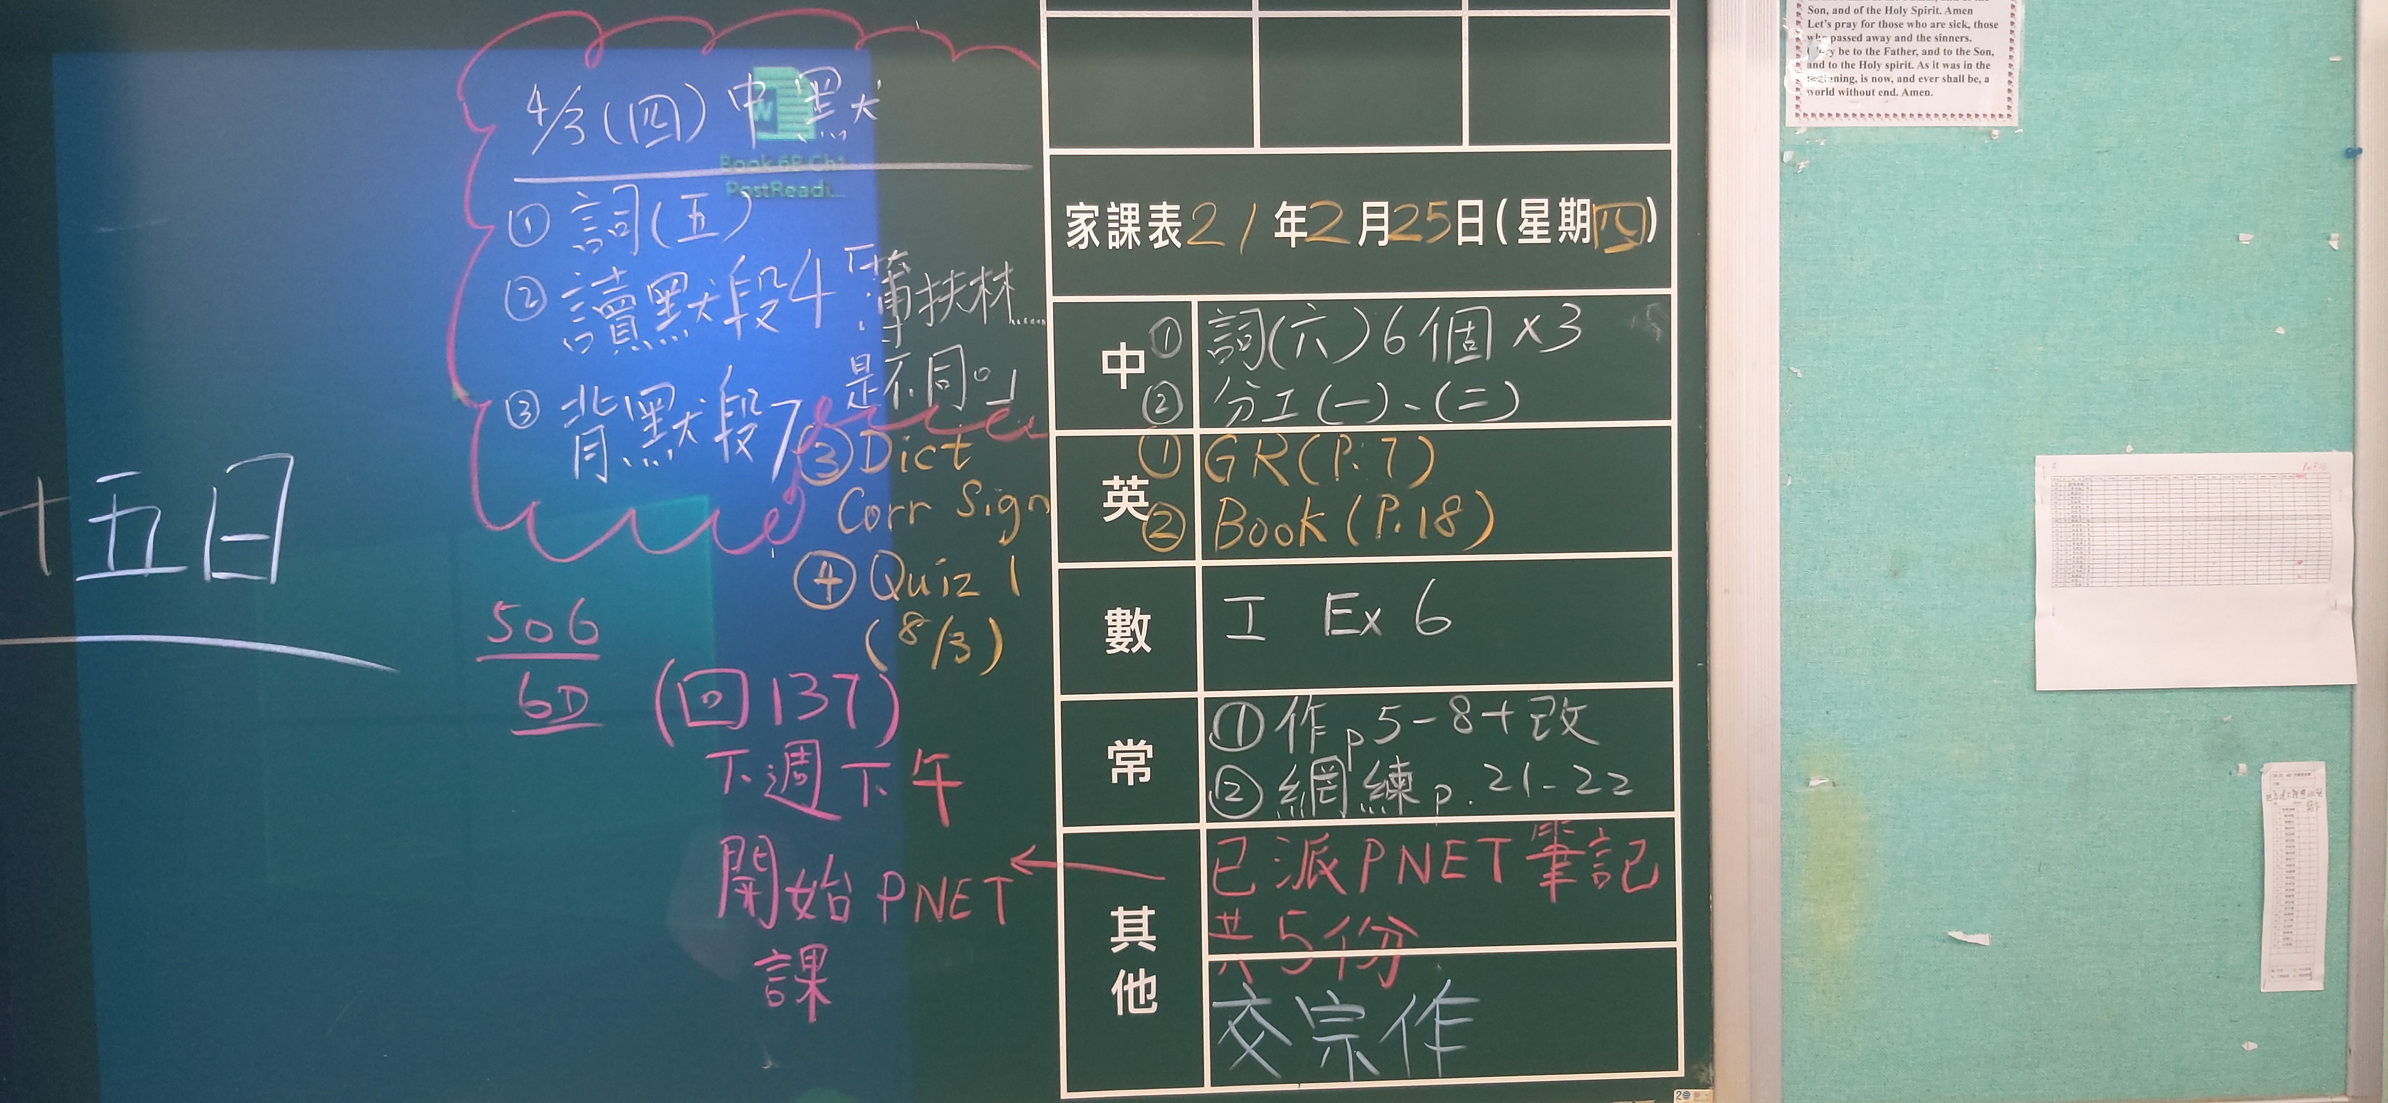 十五日
4/3(四) 中默
Book 6B Ch1
PostReadi...
① 詞(五)
② 讀默段4「薄扶林......
是不同。」
③ 背默段7
③ Dict
Corr Sign
④ Quiz 1
(8/3)
506
6D
(回137)
下週下午
開始PNET
課
家課表21年2月25日(星期四)
中
① 詞(六)6個×3
② 分工(一)、(二)
英
① GR(P.7)
② Book(P.18)
數
工 Ex 6
常
① 作p5-8+改
② 網練p.21-22
其他
已派PNET筆記
共5份
交宗作
Son, and of the Holy Spirit. Amen
Let's pray for those who are sick, those
who passed away and the sinners.
be to the Father, and to the Son,
and to the Holy spirit. As it was in the
beginning, is now, and ever shall be, a
world without end. Amen.